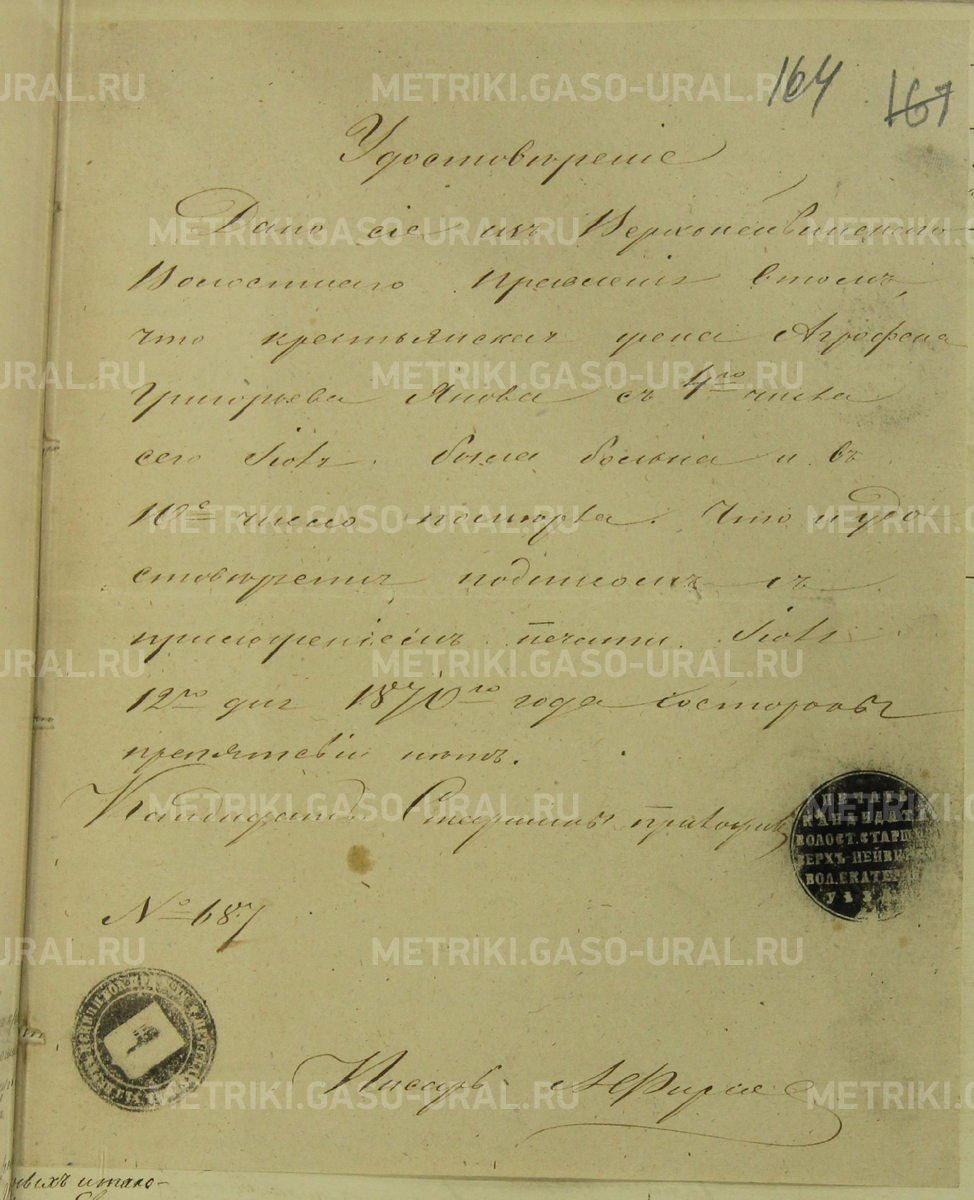 164 167
Удостовѣреніе
Дано сіе изъ Верхнейвинскаго
Волостнаго Правленія втомъ,
что крестьянская жена Агрофена
Григорьева Янова съ 4го числа
сего Іюля была больна и въ
10е число померла. Что и удо
стовѣряемъ подписомъ съ
приложеніемъ печати Іюля
12го дня 1870го года состороны
препятствій нѣтъ.
Кандидатъ Старшины
ПЕЧАТЬ
КАНДИДАТ
ВОЛОСТ. СТАРШ
ВЕРХЪ-НЕЙВИН
ВОЛ. ЕКАТЕР
УѢЗ
№ 687
Писарь
METRIKI.GASO-URAL.RU